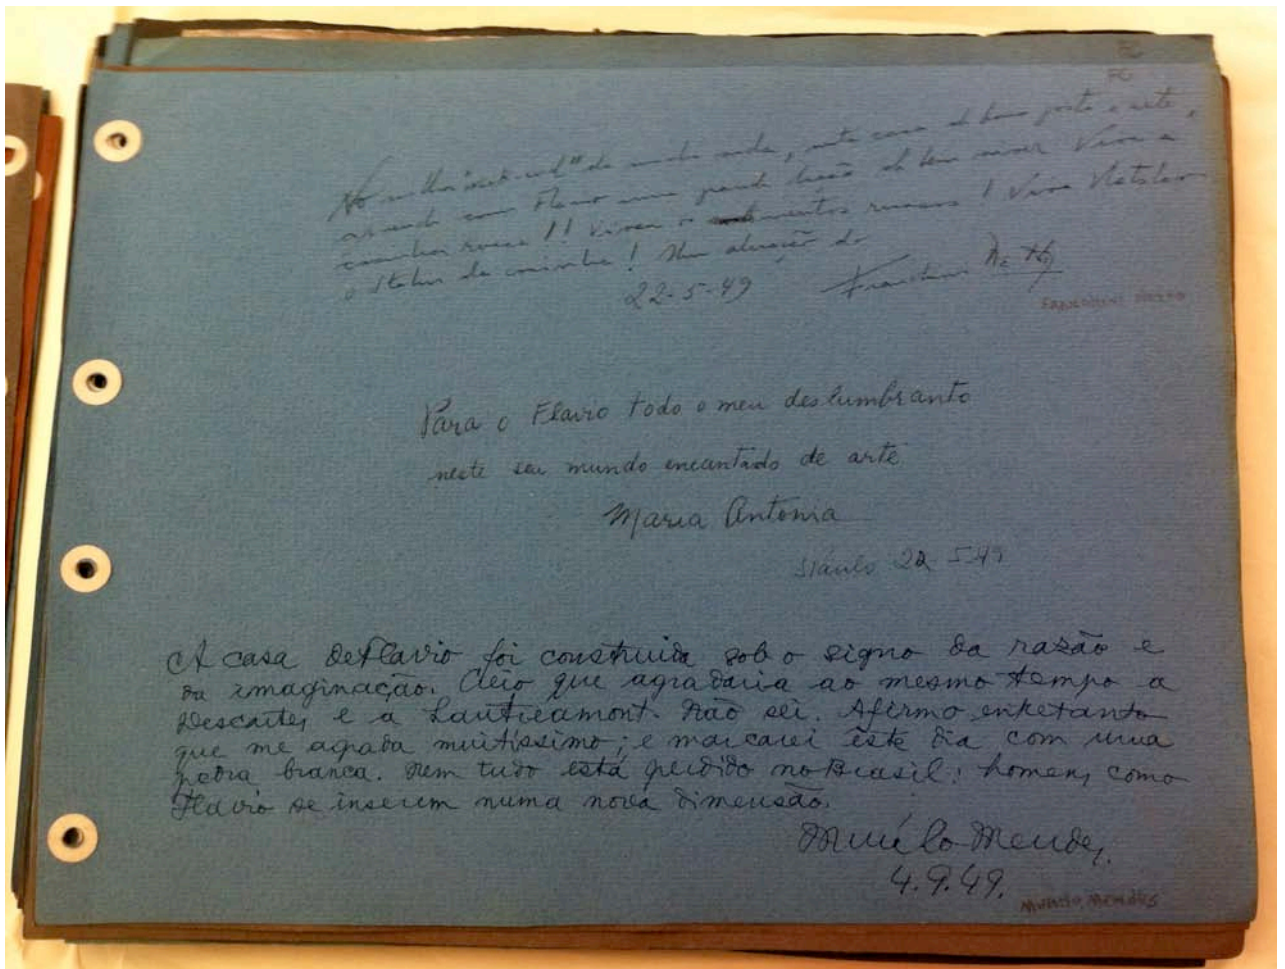 FC
FC
No melhor "week-end" de minha vida, nesta casa de bom gosto e arte,
aprendi com Flavio uma grande lição de bem viver. Viva a
cosinha russa!! Vivam os mantimentos russos! Viva
o Stalin da cosinha! Um abração do
22-5-49
Para o Flavio todo o meu deslumbranto
neste seu mundo encantado de arte
Maria Antonia
S Paulo 22-5-49
A casa de Flavio foi construida sob o signo da razão e
da imaginação. Creio que agradaria ao mesmo tempo a
Descartes e a Lautréamont. Não sei. Afirmo entretanto
que me agrada muitíssimo; e marcarei êste dia com uma
pedra branca. Nem tudo está perdido no Brasil: homens como
Flavio se inserem numa nova dimensão.
Murilo Mendes.
4.9.49.
MURILO MENDES